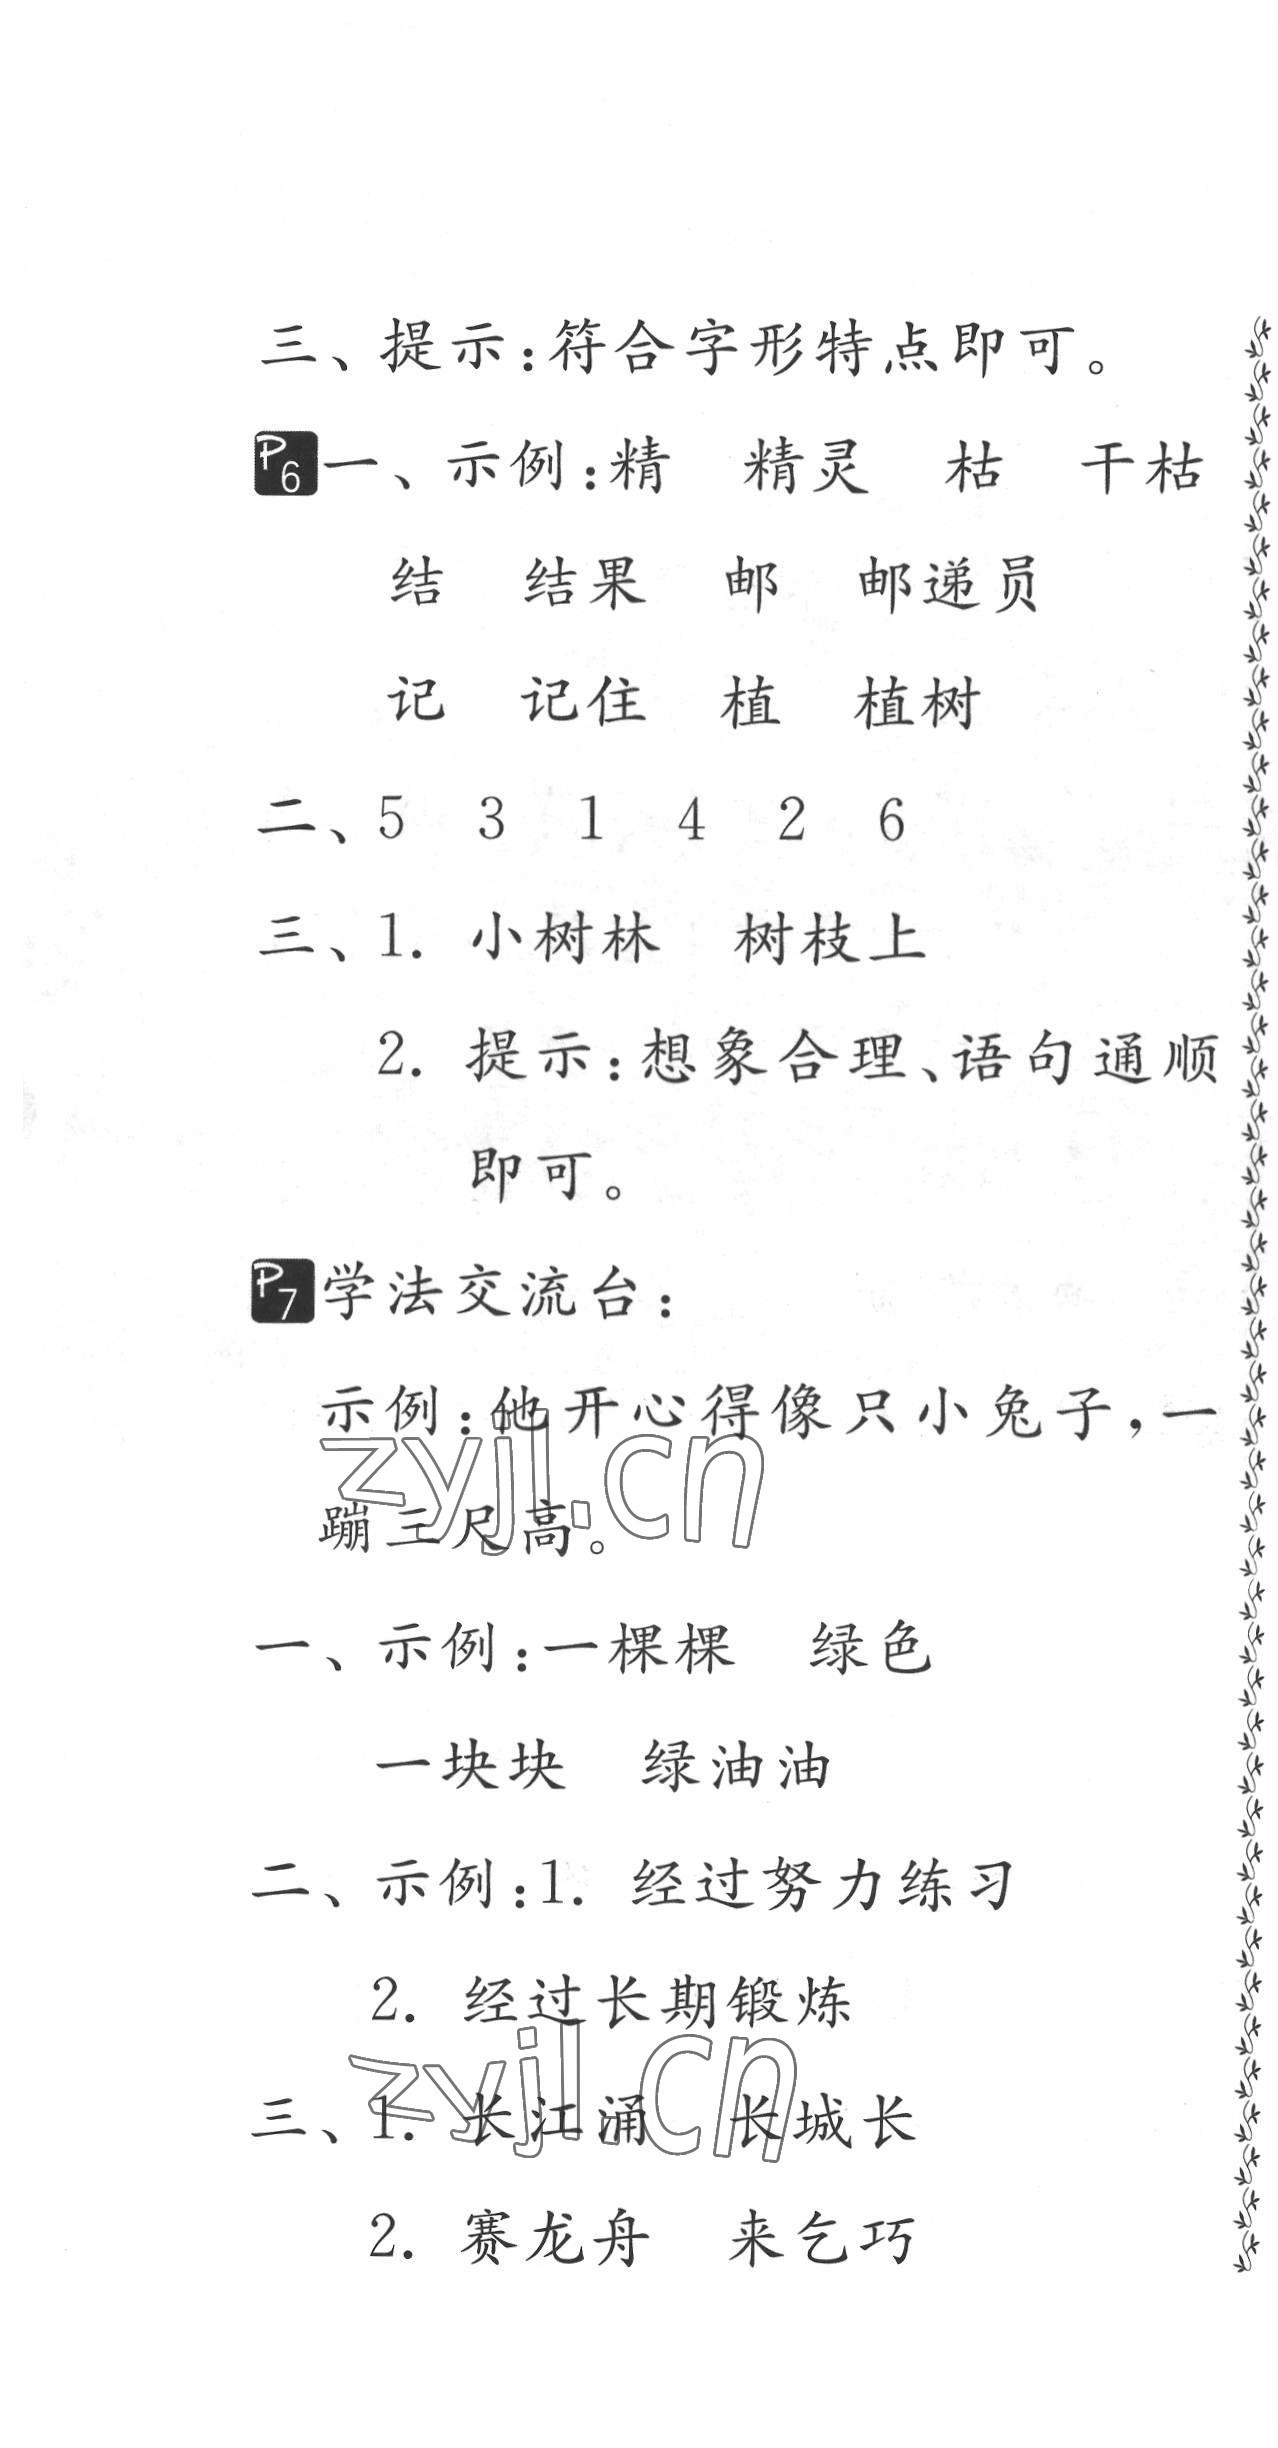 三、提示:符合字形特点即可。
P6 一、示例:精 精灵 枯 干枯
结 结果 邮 邮递员
记 记住 植 植树
二、5 3 1 4 2 6
三、1. 小树林 树枝上
2. 提示:想象合理、语句通顺
即可。
P7 学法交流台:
示例:他开心得像只小兔子,一
蹦三尺高。
zyjl.cn
一、示例:一棵棵 绿色
一块块 绿油油
二、示例:1. 经过努力练习
2. 经过长期锻炼
zyjl.cn
三、1. 长江涌 长城长
2. 赛龙舟 来乞巧